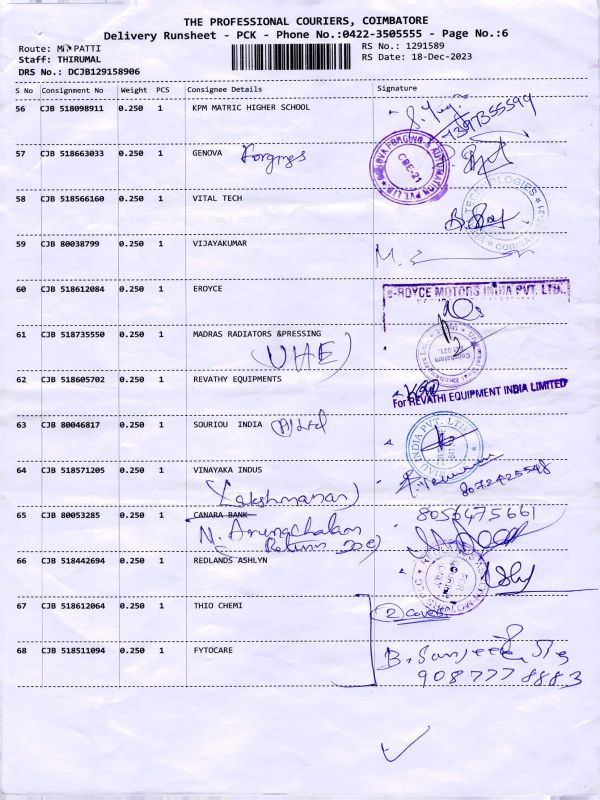 THE PROFESSIONAL COURIERS, COIMBATORE
Delivery Runsheet - PCK - Phone No.:0422-3505555 - Page No.:6
Route: M PATTI
RS No.: 1291589
Staff: THIRUMAL
RS Date: 18-Dec-2023
DRS No.: DCJB129158906
S No Consignment No Weight PCS Consignee Details Signature
56 CJB 518098911 0.250 1 KPM MATRIC HIGHER SCHOOL
7397355594
57 CJB 518663033 0.250 1 GENOVA Forgings
CBE-21
58 CJB 518566160 0.250 1 VITAL TECH
59 CJB 80038799 0.250 1 VIJAYAKUMAR
60 CJB 518612084 0.250 1 EROYCE
e-ROYCE MOTORS INDIA PVT. LTD.,
61 CJB 518735550 0.250 1 MADRAS RADIATORS &PRESSING
(UHE)
62 CJB 518605702 0.250 1 REVATHY EQUIPMENTS
For REVATHI EQUIPMENT INDIA LIMITED
63 CJB 80046817 0.250 1 SOURIOU INDIA (P) Ltd
64 CJB 518571205 0.250 1 VINAYAKA INDUS
8072425548
(Lakshmanan)
65 CJB 80053285 0.250 1 CANARA BANK
8056475661
N. Arunachalam
66 CJB 518442694 0.250 1 REDLANDS ASHLYN
67 CJB 518612064 0.250 1 THIO CHEMI
(2) covers
68 CJB 518511094 0.250 1 FYTOCARE
B. Sanjeev
9087778883